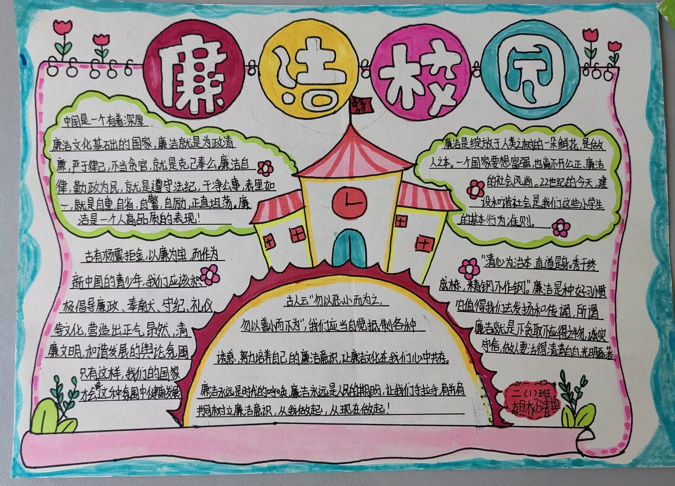 廉洁校园
中国是一个有着深厚
廉洁文化基础的国家,廉洁就是为政清
廉,严于律己,不当贪官,就是克己奉公,廉洁自
律,勤政为民,就是遵守法纪,干净公事,表里如
一,就是自重,自省,自警,自励,正直坦荡,廉
洁是一个人高品质的表现!
古有杨震拒金,以廉为宝,而作为
新中国的青少年,我们应该大
极倡导廉政、奉献大、守纪、礼仪
等文化,营造出正气,昂然,清
廉文明,和谐发展的舆论氛围
只有这样,我们的国家
才会在这种氛围中健康发展
廉洁是绽放于人类文明的一朵鲜花,是做
人之本。一个国家要想富强,也离不开公正、廉洁
的社会风尚。22世纪的今天,建
设和谐社会是我们这些小学生
的基本行为准则。
"清心为治本,直道是身谋。秀干终
成栋,精钢不作钩"。廉洁是种好习惯
也值得我们去发扬和传诵,所谓
廉洁就是不贪取不应得之物,诚实
守信,做人要活得清清白白,光明磊落
古人云"勿以恶小而为之,
勿以善小而不为",我们应当自觉抵制各种
诱惑,努力培养自己的廉洁意识,让廉洁文化在我们心中书存。
廉洁永远是时代的呼唤,廉洁永远是人民的期盼,让我们手拉手,肩并肩
共同树立廉洁意识,从我做起,从现在做起!
二(1)班